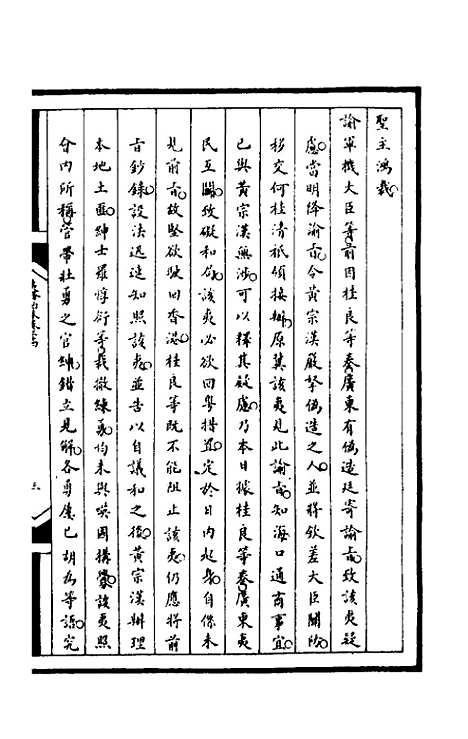 聖主鴻裁
諭軍機大臣等前因桂良等奏廣東有偽造廷寄諭旨致該夷疑
慮當明降諭旨令黃宗漢嚴拏偽造之人並將欽差大臣關防
移交何桂清祇領接辦原冀該夷見此諭旨知海口通商事宜
已與黃宗漢無涉可以釋其疑慮乃本日據桂良等奏廣東夷
民互鬭致礙和局該夷必欲回粵措置定於日內起身自係未
見前旨故堅欲駛回香港桂良等既不能阻止該夷仍應將前
旨鈔錄設法迅速知照該夷並告以自議和之後黃宗漢辦理
本地土匪紳士羅惇衍等裁撤練勇均未與喫固構釁該夷照
會內所稱官帶壯勇之官紳錯立見解各勇虞已胡為等語究